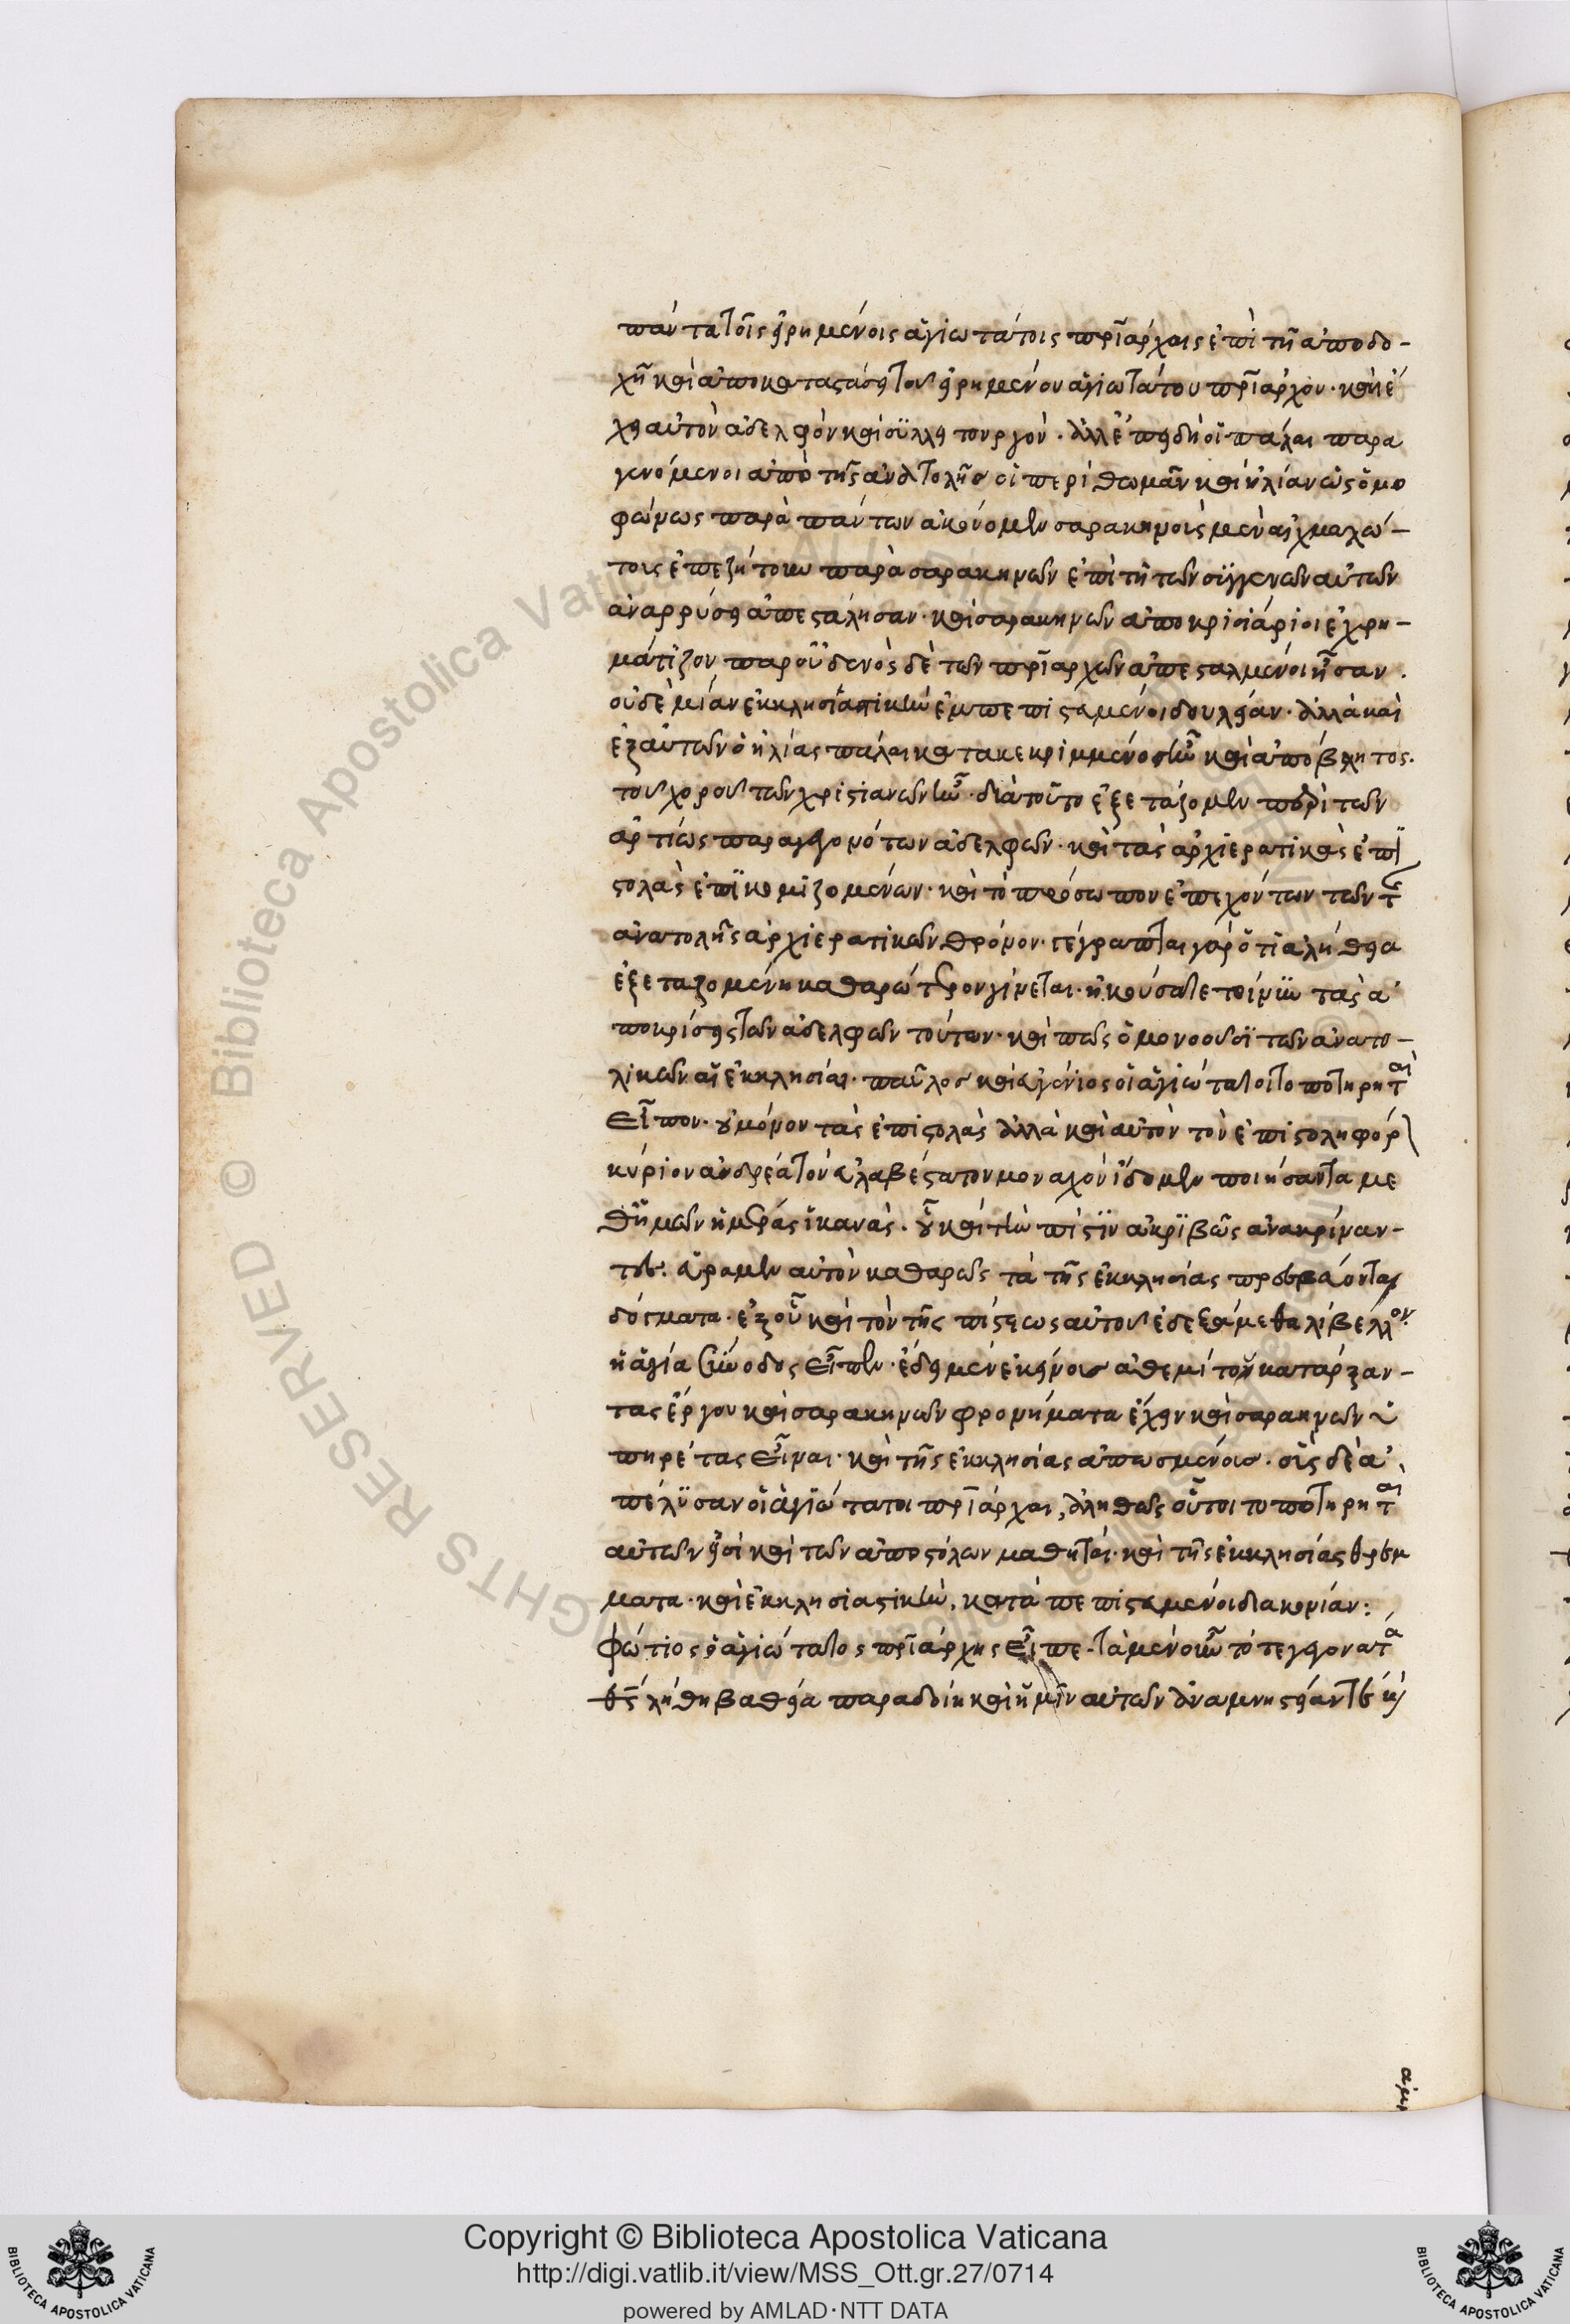 πάντα τοῖς εἰρημένοις ἁγιωτάτοις πριάρχαις ἐπὶ τῆ ἀποδο-
χῆ καὶ ἀποκαταστάσει τοῦ εἰρημένου ἁγιωτάτου πριάρχου· καὶ ἔ
χει αὐτὸν ἀδελφὸν καὶ συλλειτουργόν· ἀλλ' ἐπειδὴ οἱ πάλαι παρα
γενόμενοι ἀπὸ τῆς ἀνατολῆς οἱ περὶ θωμᾶν καὶ ἠλίαν ὡς ὁμο
φώνως παρὰ πάντων ἀκούομεν σαρακηνοῖς μὲν αἰχμαλώ-
τοις ἐπεζήτουν παρὰ σαρακηνῶν ἐπὶ τῆ τῶν συγγενῶν αὐτῶν
ἀναρρύσει ἀπεστάλησαν· καὶ σαρακηνῶν ἀποκρισιάριοι ἐχρη-
μάτιζον παρ' οὐδενὸς δὲ τῶν πριαρχῶν ἀπεσταλμένοι ἦσαν.
οὐδὲ μίαν ἐκκλησιαστικὴν ἐμπεπιστευμένοι δουλείαν· ἀλλὰ καὶ
ἐξ αὐτῶν ὁ ἠλίας πάλαι κατακεκριμμένος ἦν καὶ ἀπόβλητος.
τοῦ χοροῦ τῶν χριστιανῶν ἦν· διὰ τοῦτο ἐξετάζομεν περὶ τῶν
ἀρτίως παραγεγονότων ἀδελφῶν· καὶ τὰς ἀρχιερατικὰς ἐπι
στολὰς ἐπικομιζομένων· καὶ τὸ πρόσωπον ἐπεχόντων τῶν τῆς
ἀνατολῆς ἀρχιερατικῶν θρόνον· γέγραπται γάρ ὅτι ἀλήθεια
ἐξεταζομένη καθαρώτερον γίνεται· ἠκούσατε τοίνυν τὰς ἀ
ποκρίσεις τῶν ἀδελφῶν τούτων· καὶ πῶς ὁμονοοῦσι τῶν ἀνατο-
λικῶν αἱ ἐκκλησίαι· παῦλος καὶ εὐγένιος οἱ ἁγιώτατοι τοποτηρηταὶ
εἶπον· οὐ μόνον τὰς ἐπιστολὰς ἀλλὰ καὶ αὐτὸν τὸν ἐπιστοληφόρ
κύριον ἀνδρέα τὸν εὐλαβέστατον μοναχὸν ἴδομεν ποιήσαντα με
θ' ἡμῶν ἡμέρας ἱκανάς· οὗ καὶ τὴν πίστιν ἀκριβῶς ἀνακρίναν-
τες· εὕρομεν αὐτὸν καθαρῶς τὰ τῆς ἐκκλησίας πρεσβεύοντα
δόγματα· ἐξ οὗ καὶ τὸν τῆς πίστεως αὐτοῦ ἐδεξάμεθα λίβελλον
ἡ ἁγία σύνοδος εἶπεν· ἔδει μὲν ἐκείνους ἀθεμίτου κατάρξαν-
τας ἔργου καὶ σαρακηνῶν φρονήματα ἔχειν καὶ σαρακηνῶν ὑ
πηρέτας εἶναι· καὶ τῆς ἐκκλησίας ἀπωσμένους· οὓς δὲ ἀ
πέλυσαν οἱ ἁγιώτατοι πριάρχαι, ἀληθῶς οὗτοι τοποτηρηταὶ
αὐτῶν εἰσὶ καὶ τῶν ἀποστόλων μαθηταί· καὶ τῆς ἐκκλησίας
ματα· καὶ ἐκκλησιαστικὴν, κατὰ πεπιστευμένοι διακονίαν:
φώτιος ὁ ἁγιώτατος πριάρχης εἶπε· τὰ μὲν οὖν τότε γεγονότα
λήθη βαθεία παραδοίη καὶ ἡμῖν αὐτῶν ἀναμνησθέντες